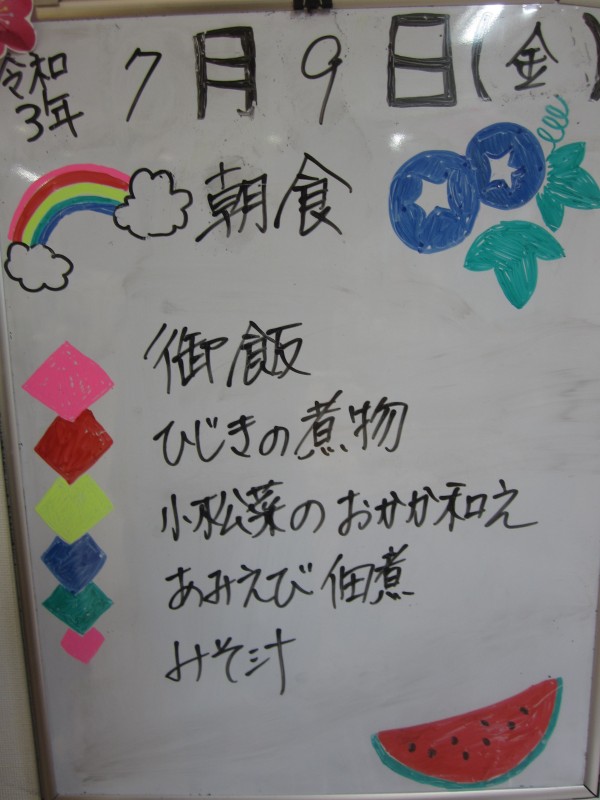 令和3年 7月9日(金)
朝食
御飯
ひじきの煮物
小松菜のおかか和え
あみえび佃煮
みそ汁